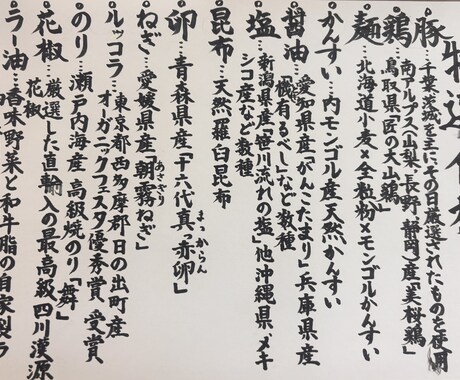 特選仕入
豚…千葉、茨城を主にその日厳選されたものを使用
鶏…南アルプス(山梨・長野・静岡)産「美桜鶏」
鳥取県「匠の大山鶏」
麺…北海道小麦×全粒粉×モンゴルかんすい
かんすい…内モンゴル産天然かんすい
醤油…愛知県産「がんこたまり」兵庫県産
「機有るべし」など数種
塩…新潟県産「笹川流れの塩」他沖縄県、メキ
シコ産など数種
昆布…天然羅臼昆布
卵…青森県産「十六代真っ赤卵」
まっからん
ねぎ…愛媛県産「朝霧ねぎ」
あさぎり
ルッコラ…東京都西多摩郡日の出町産
オーガニックフェスタ優秀賞受賞
のり…瀬戸内海産 高級焼のり「舞」
花椒…厳選した直輸入の最高級四川漢源
花椒
ラー油…香味野菜と和牛脂の自家製ラ